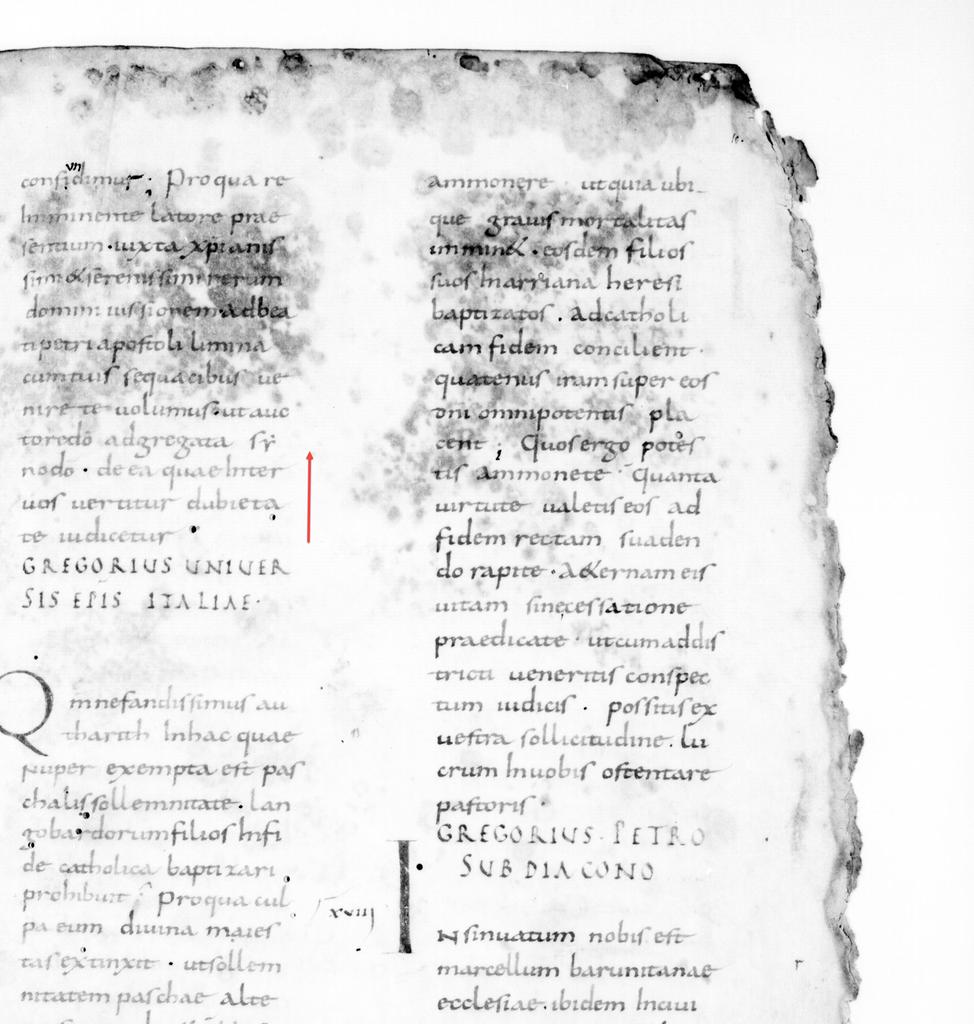 confidimus; Pro qua re
Imminente latore prae
sentium · iuxta xp̄ianis
simi & serenissimi rerum
domini iussionem · ad bea
ti petri apostoli limina
cum tuis sequacibus ve
nire te volumus · ut auc
tore dō adgregata sy
nodo · de ea quae Inter
vos vertitur dubieta
te iudicetur
GREGORIUS UNIVER
SIS EPIS ITALIAE ·
Q m nefandissimus au
tharith In hac quae
Nuper exempta est pas
chali sollemnitate · lan
gobardorum filios In fi
de catholica baptizari
prohibuit; Pro qua cul
pa eum divina maies
tas extinxit · ut sollem
nitatem paschae alte
ammonere ut quia ubi
que gravis mortalitas
imminet · eosdem filios
suos In arriana heresi
baptizatos . Ad catholi
cam fidem concilient ·
quatenus iram super eos
dni omnipotentis pla
cent; Quos ergo potes
tis Ammonete Quanta
virtute valetis eos ad
fidem rectam suaden
do rapite · A&ernam eis
vitam sine cessatione
praedicate · ut cum addis
tricti veneritis conspec
tum iudicis · possitis ex
vestra sollicitudine . lu
crum In vobis ostentare
pastoris ·
GREGORIUS · PETRO
SUBDIACONO
xviii
I Nsinuatum nobis est
marcellum barunitanae
ecclesiae · ibidem In civi